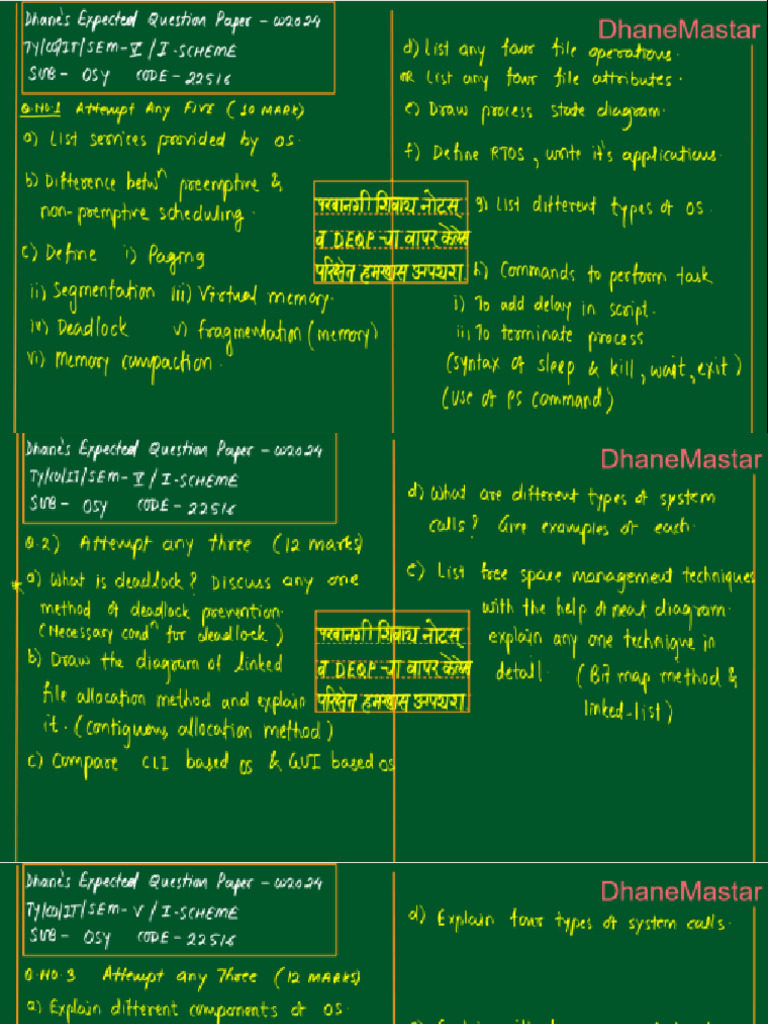 Dhane's Expected Question Paper - W2024
TY/CO/IT/SEM-V/I-SCHEME
SUB- OSY CODE-22516
Q.NO.1 Attempt Any FIVE (10 MARK)
a) List services provided by OS.
b) Difference betwn preemptive &
non-premptive scheduling.
c) Define i) Paging
ii) Segmentation iii) Virtual memory.
iv) Deadlock v) fragmentation (memory)
vi) Memory compaction.
परवानगी शिवाय नोटस्
व DEQP च्या वापर केलेस
परिक्षेत हमखास अपयश
DhaneMastar
d) List any four file operations.
OR List any four file attributes.
e) Draw process state diagram.
f) Define RTOS, write it's applications.
g) List different types of OS.
h) Commands to perform task
i) To add delay in script.
ii) To terminate process
(syntax of sleep & kill, wait, exit)
(Use of PS command)
Dhane's Expected Question Paper - W2024
TY/CO/IT/SEM-V/I-SCHEME
SUB- OSY CODE-22516
Q.2) Attempt any three (12 marks)
* a) What is deadlock? Discuss any one
method of deadlock prevention.
(Necessary condn for deadlock)
b) Draw the diagram of linked
file allocation method and explain
it. (contiguous allocation method)
c) Compare CLI based OS & GUI based OS
परवानगी शिवाय नोटस्
व DEQP च्या वापर केलेस
परिक्षेत हमखास अपयश
DhaneMastar
d) What are different types of system
calls? Give examples of each.
e) List free space management techniques
with the help of neat diagram.
explain any one technique in
detail. (Bit map method &
linked-list)
Dhane's Expected Question Paper - W2024
TY/CO/IT/SEM-V/I-SCHEME
SUB- OSY CODE-22516
Q.NO.3 Attempt any Three (12 MARKS)
a) Explain different components of OS.
DhaneMastar
d) Explain four types of system calls.